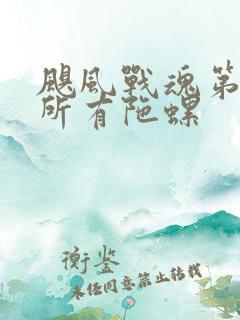 颶風戰魂第
所有陀螺
衡鉴
未经同意禁止转载